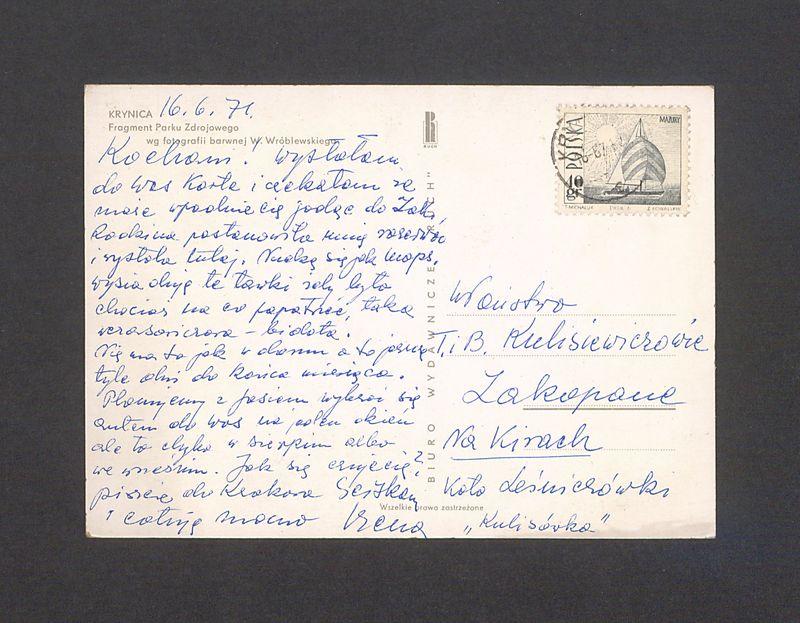 KRYNICA 16.6.71.
Fragment Parku Zdrojowego
wg fotografii barwnej W. Wróblewskiego
Kochani! Wysłałam
do Was kartę i czekałam że
może wpadniecie jadąc do
Rodzina postanowiła
i wysłała tutaj. Nudzę się jak mops,
wysiaduję te ławki żeby było
chociaż na co popatrzeć, taka
- bidota.
Nie ma to jak w domu a to jeszcze
tyle dni do końca miesiąca.
Planujemy z Jasiem wybrać się
autem do Was na jeden dzień
ale to chyba w sierpniu albo
we wrześniu. Jak się czujecie?
piszcie do Krakowa Ściskam
i całuję mocno Irena
RUCH
BIURO WYDAWNICZE „RUCH"
Wszelkie prawa zastrzeżone
POLSKA
MAZURY
10 gr
T. MICHALUK
Państwo
T. i B. Kulisiewiczowie
Zakopane
Na Kirach
Koło Leśniczówki
„Kulisówka"